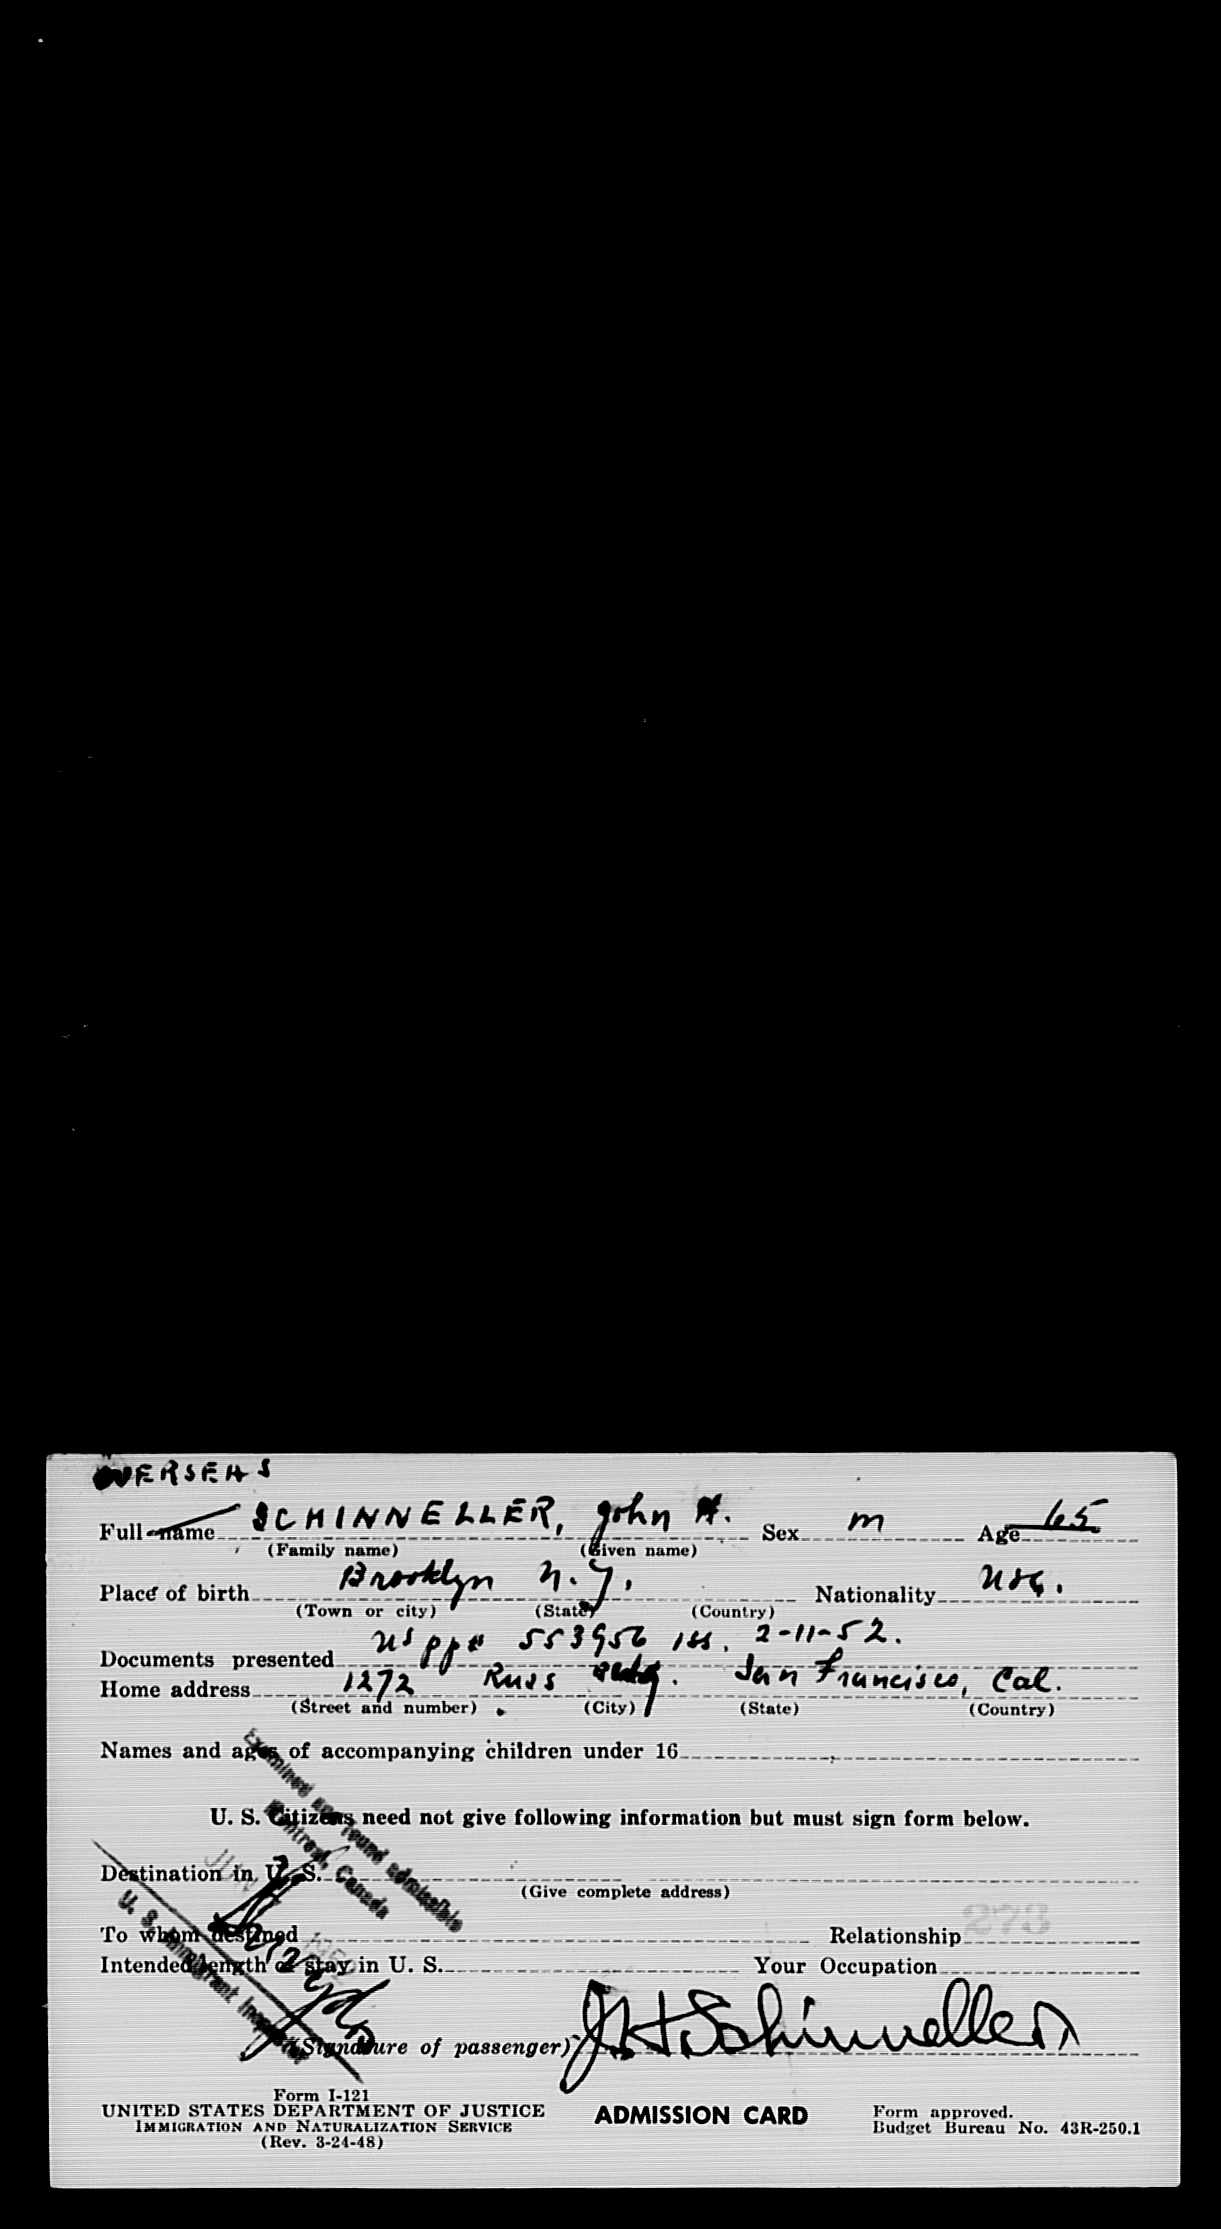 OVERSEAS
Full name SCHINNELLER, John H. Sex M Age 65
(Family name) (Given name)
Place of birth Brooklyn N.Y. Nationality USC.
(Town or city) (State) (Country)
Documents presented US pp# 553956 iss. 2-11-52.
Home address 1272 Russ Bldg. San Francisco, Cal.
(Street and number) (City) (State) (Country)
Names and ages of accompanying children under 16
U. S. Citizens need not give following information but must sign form below.
Examined and found admissible
Montreal, Canada
JUN
U. S. Immigrant Inspector
Destination in U. S.
(Give complete address)
273
To whom destined Relationship
Intended length of stay in U. S. Your Occupation
(Signature of passenger) J H Schinneller
Form I-121
UNITED STATES DEPARTMENT OF JUSTICE
IMMIGRATION AND NATURALIZATION SERVICE
(Rev. 3-24-48)
ADMISSION CARD
Form approved.
Budget Bureau No. 43R-250.1